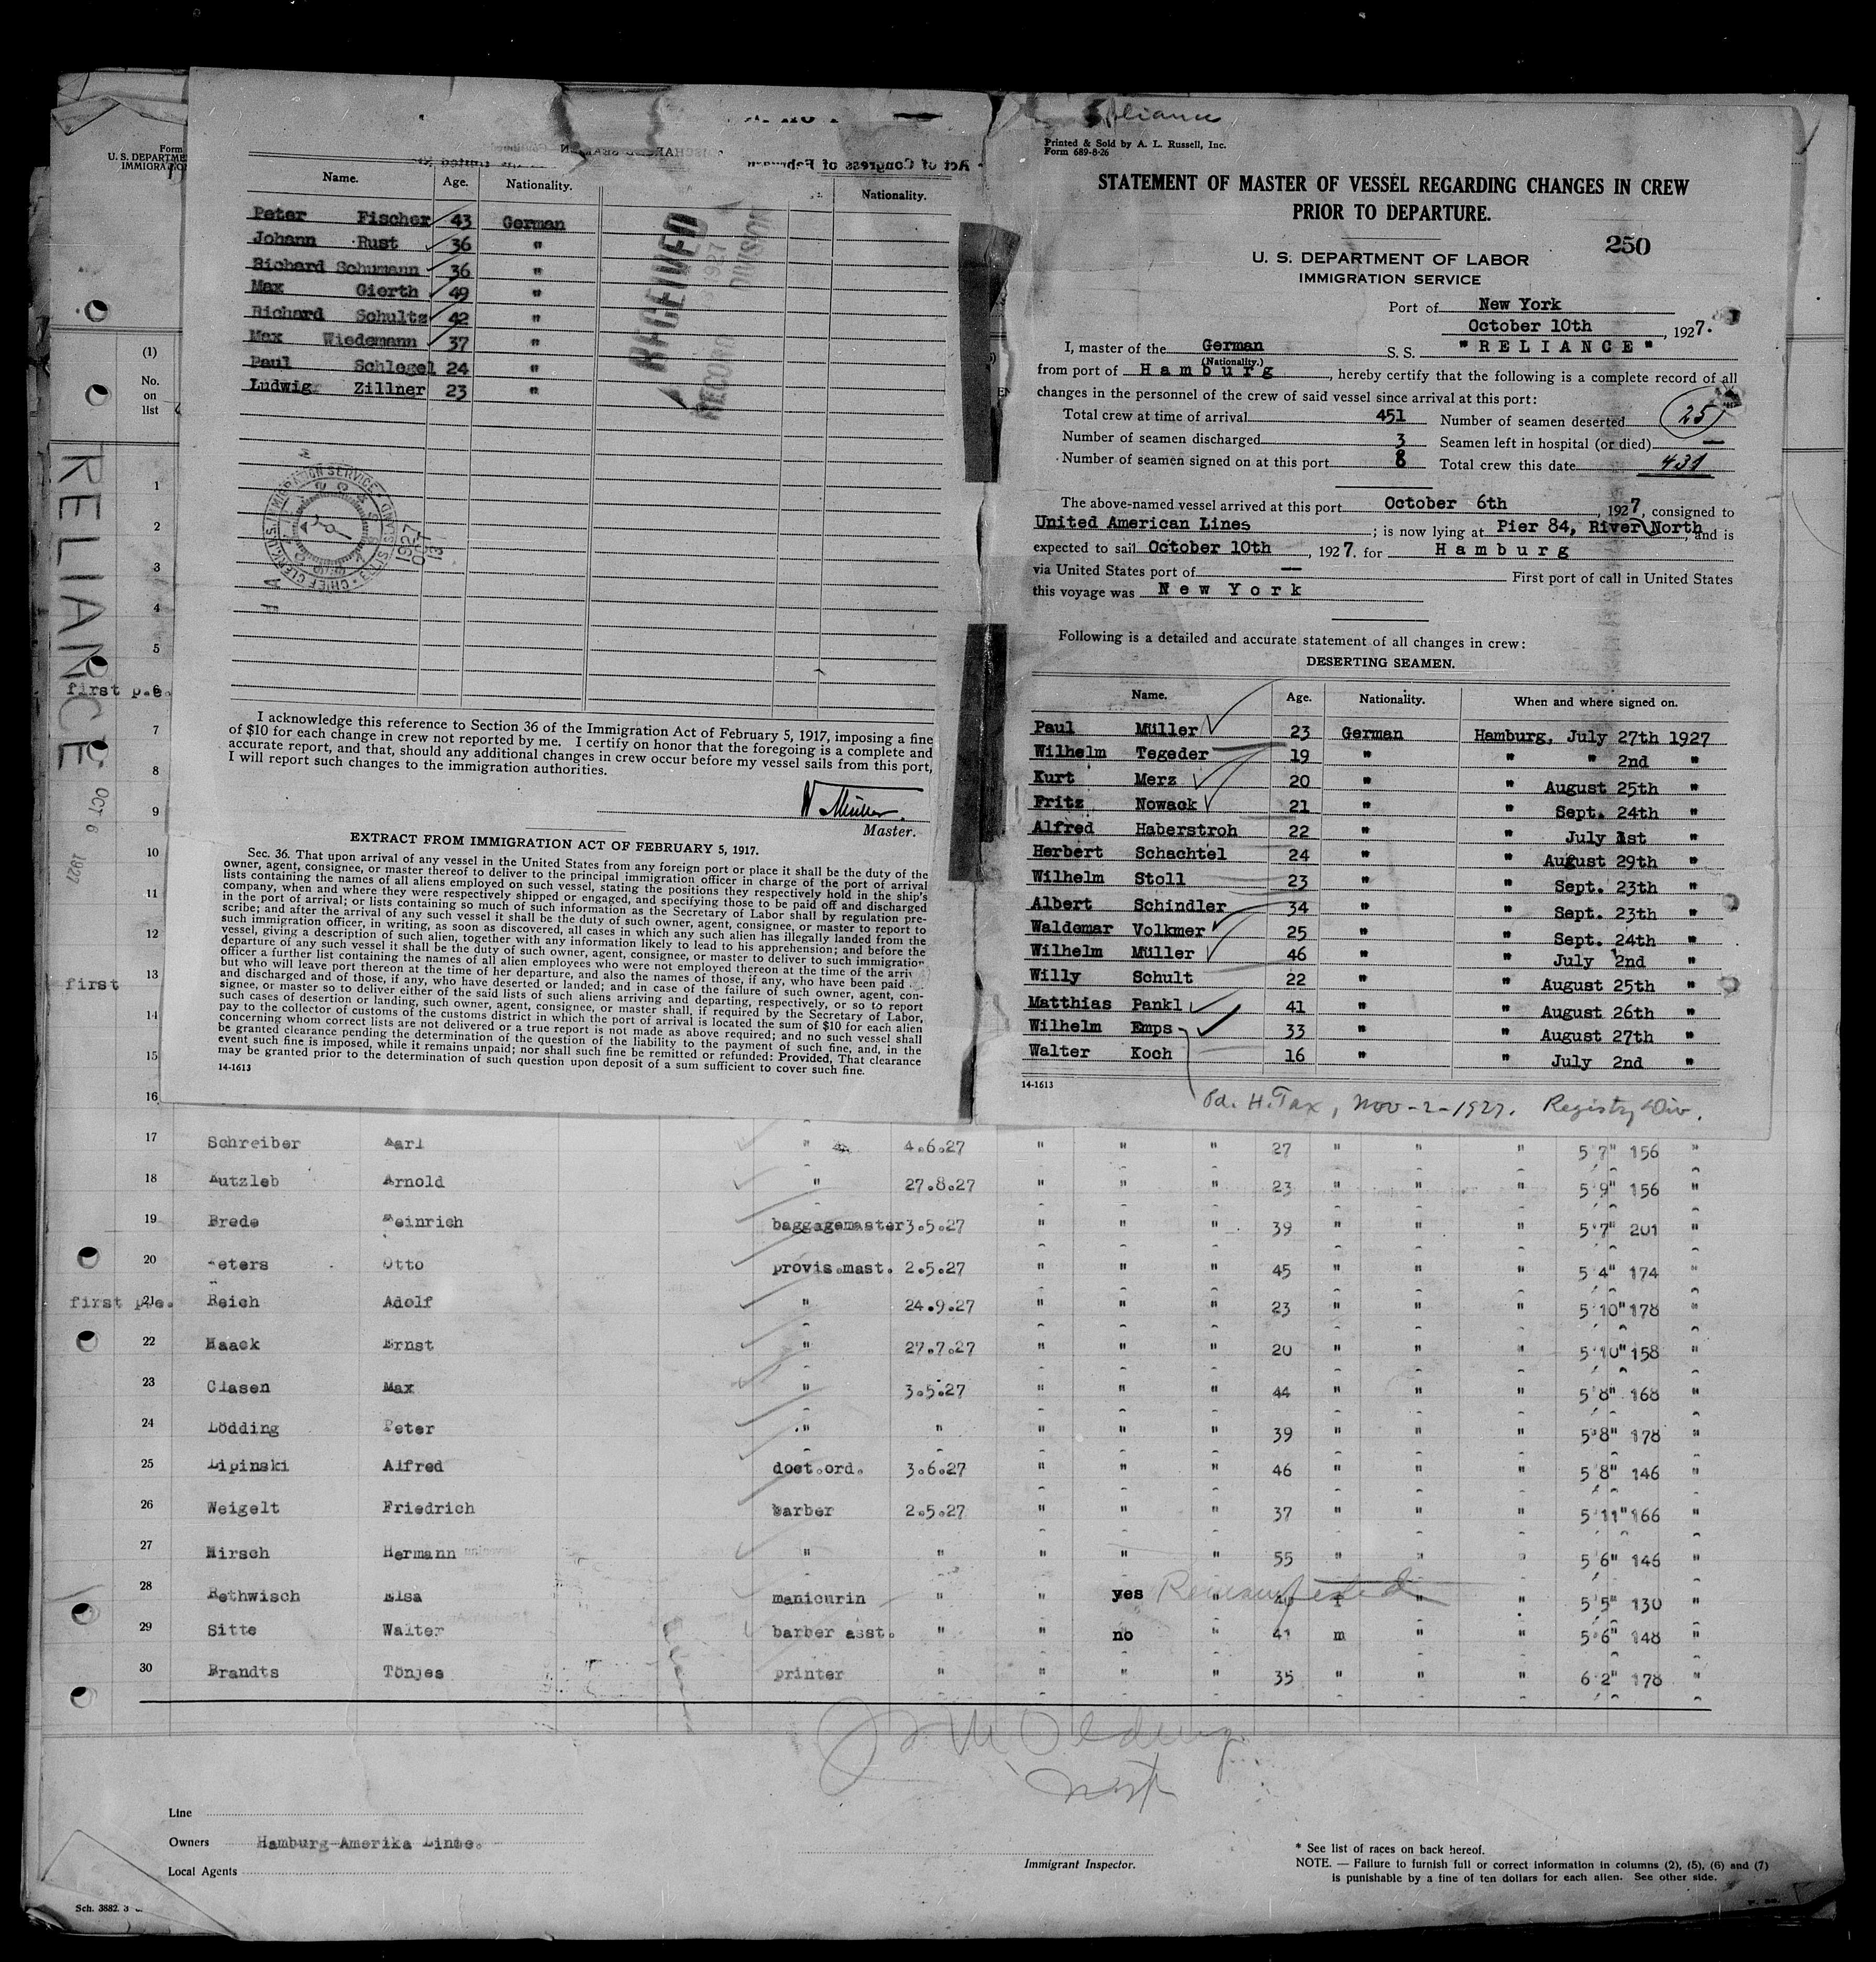 Form
U. S. DEPARTME
IMMIGRATIO
(1)
No.
on
list
RELIANCE
OCT 6 1927
Act of Congress of February
Name. Age. Nationality. Nationality.
Peter Fischer 43 German
Johann Rust 36 "
Richard Schumann 36 "
Max Gierth 49 "
Richard Schultz 42 "
Max Wiedemann 37 "
Paul Schlegel 24 "
Ludwig Zillner 23 "
RECEIVED
1927
RECORD DIVISION
1927 OCT 13
I acknowledge this reference to Section 36 of the Immigration Act of February 5, 1917, imposing a fine
of $10 for each change in crew not reported by me. I certify on honor that the foregoing is a complete and
accurate report, and that, should any additional changes in crew occur before my vessel sails from this port,
I will report such changes to the immigration authorities.
Master.
EXTRACT FROM IMMIGRATION ACT OF FEBRUARY 5, 1917.
Sec. 36. That upon arrival of any vessel in the United States from any foreign port or place it shall be the duty of the
owner, agent, consignee, or master thereof to deliver to the principal immigration officer in charge of the port of arrival
lists containing the names of all aliens employed on such vessel, stating the positions they respectively hold in the ship's
company, when and where they were respectively shipped or engaged, and specifying those to be paid off and discharged
in the port of arrival; or lists containing so much of such information as the Secretary of Labor shall by regulation pre-
scribe; and after the arrival of any such vessel it shall be the duty of such owner, agent, consignee, or master to report to
such immigration officer, in writing, as soon as discovered, all cases in which any such alien has illegally landed from the
vessel, giving a description of such alien, together with any information likely to lead to his apprehension; and before the
departure of any such vessel it shall be the duty of such owner, agent, consignee, or master to deliver to such immigration
officer a further list containing the names of all alien employees who were not employed thereon at the time of the arriv
but who will leave port thereon at the time of her departure, and also the names of those, if any, who have been paid
and discharged and of those, if any, who have deserted or landed; and in case of the failure of such owner, agent, con-
signee, or master so to deliver either of the said lists of such aliens arriving and departing, respectively, or so to report
such cases of desertion or landing, such owner, agent, consignee, or master shall, if required by the Secretary of Labor,
pay to the collector of customs of the customs district in which the port of arrival is located the sum of $10 for each alien
concerning whom correct lists are not delivered or a true report is not made as above required; and no such vessel shall
be granted clearance pending the determination of the question of the liability to the payment of such fine, and, in the
event such fine is imposed, while it remains unpaid; nor shall such fine be remitted or refunded: Provided, That clearance
may be granted prior to the determination of such question upon deposit of a sum sufficient to cover such fine.
14-1613
Reliance
Printed & Sold by A. L. Russell, Inc.
Form 689-8-26
STATEMENT OF MASTER OF VESSEL REGARDING CHANGES IN CREW
PRIOR TO DEPARTURE.
250
U. S. DEPARTMENT OF LABOR
IMMIGRATION SERVICE
Port of New York
October 10th, 1927.
I, master of the German S. S. "RELIANCE"
(Nationality.)
from port of Hamburg, hereby certify that the following is a complete record of all
changes in the personnel of the crew of said vessel since arrival at this port:
Total crew at time of arrival 451 Number of seamen deserted 25
Number of seamen discharged 3 Seamen left in hospital (or died) —
Number of seamen signed on at this port 8 Total crew this date 431
The above-named vessel arrived at this port October 6th, 1927, consigned to
United American Lines; is now lying at Pier 84, River North, and is
expected to sail October 10th, 1927. for Hamburg
via United States port of — First port of call in United States
this voyage was New York
Following is a detailed and accurate statement of all changes in crew:
DESERTING SEAMEN.
Name. Age. Nationality. When and where signed on.
Paul Müller 23 German Hamburg, July 27th 1927
Wilhelm Tegeder 19 " " " 2nd "
Kurt Merz 20 " " August 25th "
Fritz Nowack 21 " " Sept. 24th "
Alfred Haberstroh 22 " " July 1st "
Herbert Schachtel 24 " " August 29th "
Wilhelm Stoll 23 " " Sept. 23th "
Albert Schindler 34 " " Sept. 23th "
Waldemar Volkmer 25 " " Sept. 24th "
Wilhelm Müller 46 " " July 2nd "
Willy Schult 22 " " August 25th "
Matthias Pankl 41 " " August 26th "
Wilhelm Emps 33 " " August 27th "
Walter Koch 16 " " July 2nd "
14-1613
Pd. H. Tax, Nov-2-1927. Registry Div.
1
2
3
4
5
first p.e. 6
7
8
9
10
11
12
13
first
14
15
16
17 Schreiber Karl " 4.6.27 " " " 27 " " " 5'7" 156 "
18 Autzleb Arnold " 27.8.27 " " " 23 " " " 5'9" 156 "
19 Brede Heinrich baggagemaster 3.5.27 " " " 39 " " " 5'7" 201 "
20 Peters Otto provis.mast. 2.5.27 " " " 45 " " " 5'4" 174 "
first p.e. 21 Reich Adolf " 24.9.27 " " " 23 " " " 5'10" 178 "
22 Haack Ernst " 27.7.27 " " " 20 " " " 5'10" 158 "
23 Clasen Max " 3.5.27 " " " 44 " " " 5'8" 168 "
24 Lödding Peter " " " " " 39 " " " 5'8" 178 "
25 Lipinski Alfred doct.ord. 3.6.27 " " " 46 " " " 5'8" 146 "
26 Weigelt Friedrich barber 2.5.27 " " " 37 " " " 5'11" 166 "
27 Hirsch Hermann " " " " " 55 " " " 5'6" 146 "
28 Rethwisch Elsa manicurin " " yes " f " " 5'5" 130 "
29 Sitte Walter barber asst. " " no " 41 m " " 5'6" 148 "
30 Brandts Tönjes printer " " " " 35 " " " 6'2" 178 "
Line
Owners Hamburg-Amerika Linie.
Local Agents
Immigrant Inspector.
* See list of races on back hereof.
NOTE. — Failure to furnish full or correct information in columns (2), (5), (6) and (7)
is punishable by a fine of ten dollars for each alien. See other side.
Sch. 3882. 3